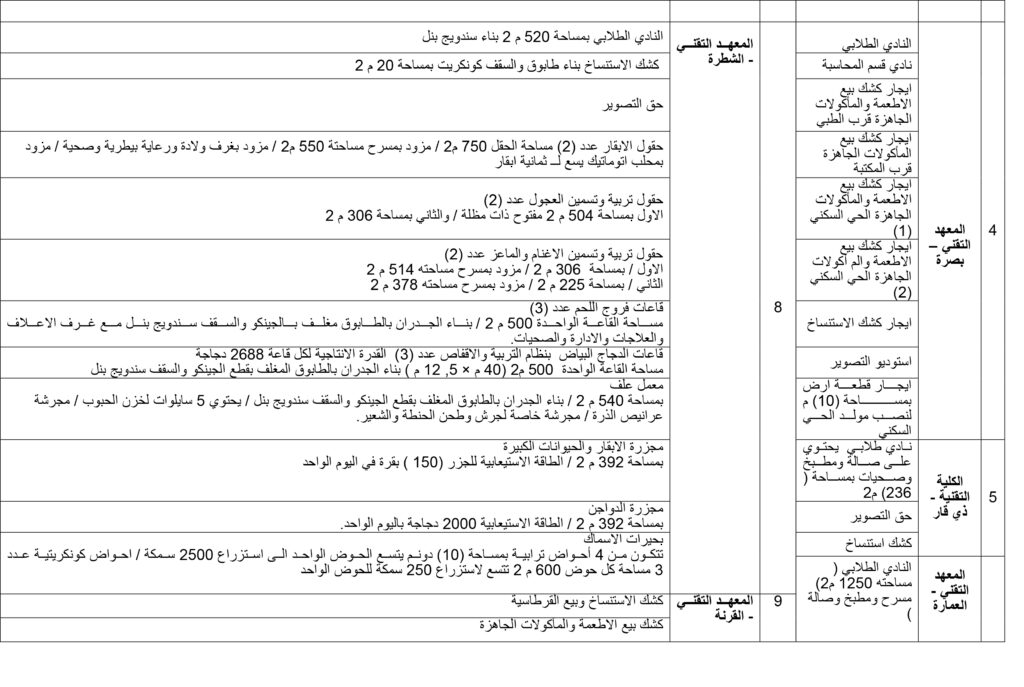 4
المعهد
التقني –
بصرة
النادي الطلابي
نادي قسم المحاسبة
ايجار كشك بيع
الاطعمة والمأكولات
الجاهزة قرب الطبي
ايجار كشك بيع
المأكولات الجاهزة
قرب المكتبة
ايجار كشك بيع
الاطعمة والمأكولات
الجاهزة الحي السكني
(1)
ايجار كشك بيع
الاطعمة والم أكولات
الجاهزة الحي السكني
(2)
ايجار كشك الاستنساخ
استوديو التصوير
ايجار قطعة ارض
بمساحة (10) م
لنصب مولد الحي
السكني
5
الكلية
التقنية -
ذي قار
نادي طلابي يحتوي
على صالة ومطبخ
وصحيات بمساحة (
236) م2
حق التصوير
كشك استنساخ
المعهد
التقني -
العمارة
النادي الطلابي (
مساحته 1250 م2)
مسرح ومطبخ وصالة
)
8
المعهد التقني
- الشطرة
النادي الطلابي بمساحة 520 م 2 بناء سندويج بنل
كشك الاستنساخ بناء طابوق والسقف كونكريت بمساحة 20 م 2
حق التصوير
حقول الابقار عدد (2) مساحة الحقل 750 م2 / مزود بمسرح مساحتة 550 م2 / مزود بغرف ولادة ورعاية بيطرية وصحية / مزود
بمحلب اتوماتيك يسع لـ ثمانية ابقار
حقول تربية وتسمين العجول عدد (2)
الاول بمساحة 504 م 2 مفتوح ذات مظلة / والثاني بمساحة 306 م 2
حقول تربية وتسمين الاغنام والماعز عدد (2)
الاول / بمساحة 306 م 2 / مزود بمسرح مساحته 514 م 2
الثاني / بمساحة 225 م 2 / مزود بمسرح مساحته 378 م 2
قاعات فروج اللحم عدد (3)
مساحة القاعة الواحدة 500 م 2 / بناء الجدران بالطابوق مغلف بالجينكو والسقف سندويج بنل مع غرف الاعلاف
والعلاجات والادارة والصحيات.
قاعات الدجاج البياض بنظام التربية والاقفاص عدد (3) القدرة الانتاجية لكل قاعة 2688 دجاجة
مساحة القاعة الواحدة 500 م2 (40 م × 5, 12 م ) بناء الجدران بالطابوق المغلف بقطع الجينكو والسقف سندويج بنل
معمل علف
بمساحة 540 م 2 / بناء الجدران بالطابوق المغلف بقطع الجينكو والسقف سندويج بنل / يحتوي 5 سايلوات لخزن الحبوب / مجرشة
عرانيص الذرة / مجرشة خاصة لجرش وطحن الحنطة والشعير.
مجزرة الابقار والحيوانات الكبيرة
بمساحة 392 م 2 / الطاقة الاستيعابية للجزر (150 ) بقرة في اليوم الواحد
مجزرة الدواجن
بمساحة 392 م 2 / الطاقة الاستيعابية 2000 دجاجة باليوم الواحد.
بحيرات الاسماك
تتكون من 4 أحواض ترابية بمساحة (10) دونم يتسع الحوض الواحد الى استزراع 2500 سمكة / احواض كونكريتية عدد
3 مساحة كل حوض 600 م 2 تتسع لاستزراع 250 سمكة للحوض الواحد
9
المعهد التقني
- القرنة
كشك الاستنساخ وبيع القرطاسية
كشك بيع الاطعمة والمأكولات الجاهزة